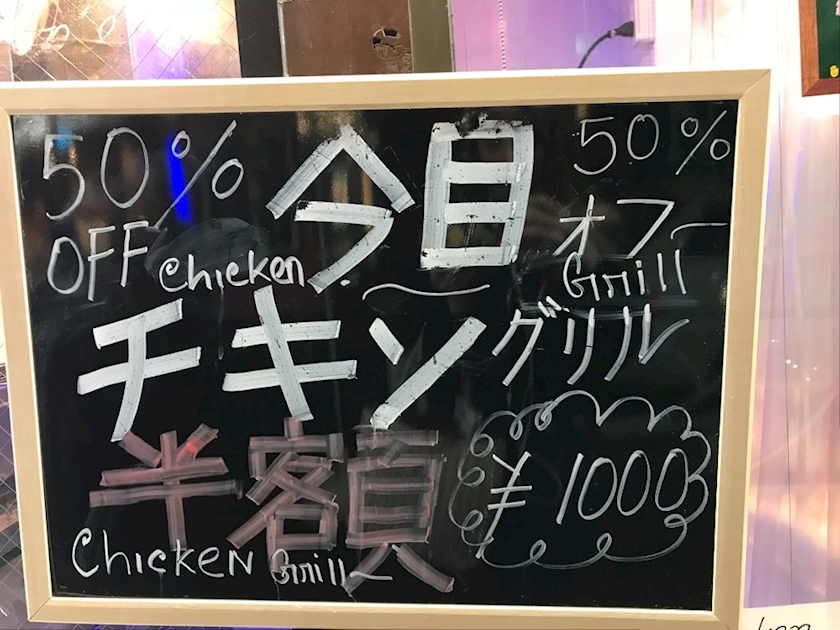 50% 今目 50%
OFF オフー
Chicken Grill
チキン グリル
半額 ¥1000
Chicken Grill